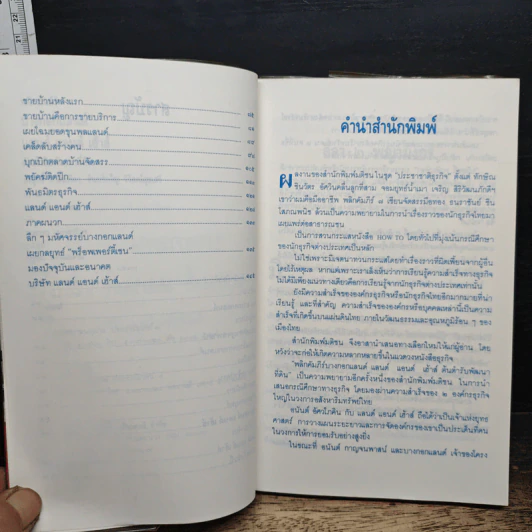 ขายบ้านหลังแรก
ขายบ้านคือการขายบริการ
เผยโฉมยอดขุนพลแลนด์
เคล็ดลับสร้างคน
บุกเบิกตลาดบ้านจัดสรร
พยัคฆ์ติดปีก
พันธมิตรธุรกิจ
แลนด์ แอนด์ เฮ้าส์
ภาคผนวก
ลึก ๆ มหัศจรรย์บางกอกแลนด์
เผยกลยุทธ์ "พร็อพเพอร์ตี้เชน"
มองปัจจุบันและอนาคต
บริษัท แลนด์ แอนด์ เฮ้าส์
คำนำสำนักพิมพ์
ผลงานของสำนักพิมพ์มติชนในชุด "ประชาชาติธุรกิจ" ตั้งแต่ ทักษิณ
ชินวัตร อัศวินคลื่นลูกที่สาม จอมยุทธ์น้ำเมา เจริญ สิริวัฒนภักดีฯ
เขาว่าผมคือมืออาชีพ พลิกคัมภีร์ ๗ เซียนจัดสรรเมืองทอง ธนราชันย์ ชิน
โสภณพนิช ล้วนเป็นความพยายามในการนำเรื่องราวของนักธุรกิจไทยมา
เผยแพร่ต่อสาธารณชน
เป็นการสวนกระแสหนังสือ HOW TO โดยทั่วไปที่มุ่งเน้นกรณีศึกษา
ของนักธุรกิจต่างประเทศเป็นหลัก
ไม่ใช่เพราะมีเจตนาทวนกระแสโดยทำเรื่องราวที่ผิดเพี้ยนจากผู้อื่น
โดยไร้เหตุผล หากแต่เพราะเราเล็งเห็นว่าการเรียนรู้ความสำเร็จทางธุรกิจ
ไม่ได้มีเพียงแนวทางเดียวคือการเรียนรู้จากนักธุรกิจต่างประเทศเท่านั้น
ยังมีความสำเร็จขององค์กรธุรกิจหรือนักธุรกิจไทยอีกมากมายที่น่า
เรียนรู้ และที่สำคัญ ความสำเร็จขององค์กรหรือบุคคลเหล่านี้เป็นความ
สำเร็จที่เกิดขึ้นบนแผ่นดินไทย ภายในวัฒนธรรมและอุณหภูมิร้อน ๆ ของ
เมืองไทย
สำนักพิมพ์มติชน จึงอาสานำเสนอทางเลือกใหม่ให้แก่ผู้อ่าน โดย
หวังว่าจะก่อให้เกิดความหลากหลายขึ้นในแวดวงหนังสือธุรกิจ
"พลิกคัมภีร์บางกอกแลนด์ แลนด์ แอนด์ เฮ้าส์ ต้นตำรับพัฒนา
ที่ดิน" เป็นความพยายามอีกครั้งหนึ่งของสำนักพิมพ์มติชน ในการนำ
เสนอกรณีศึกษาทางธุรกิจ โดยมองผ่านความสำเร็จของ ๒ องค์กรธุรกิจ
ใหญ่ในวงการอสังหาริมทรัพย์ไทย
อนันต์ อัศวโภคิน กับ แลนด์ แอนด์ เฮ้าส์ ถือได้ว่าเป็นเจ้าแห่งยุทธ
ศาสตร์ การวางแผนระยะยาวและการจัดองค์กรของเขาเป็นประเด็นที่คน
ในวงการให้การยอมรับอย่างสูงยิ่ง
ในขณะที่ อนันต์ กาญจนพาสน์ และบางกอกแลนด์ เจ้าของโครง